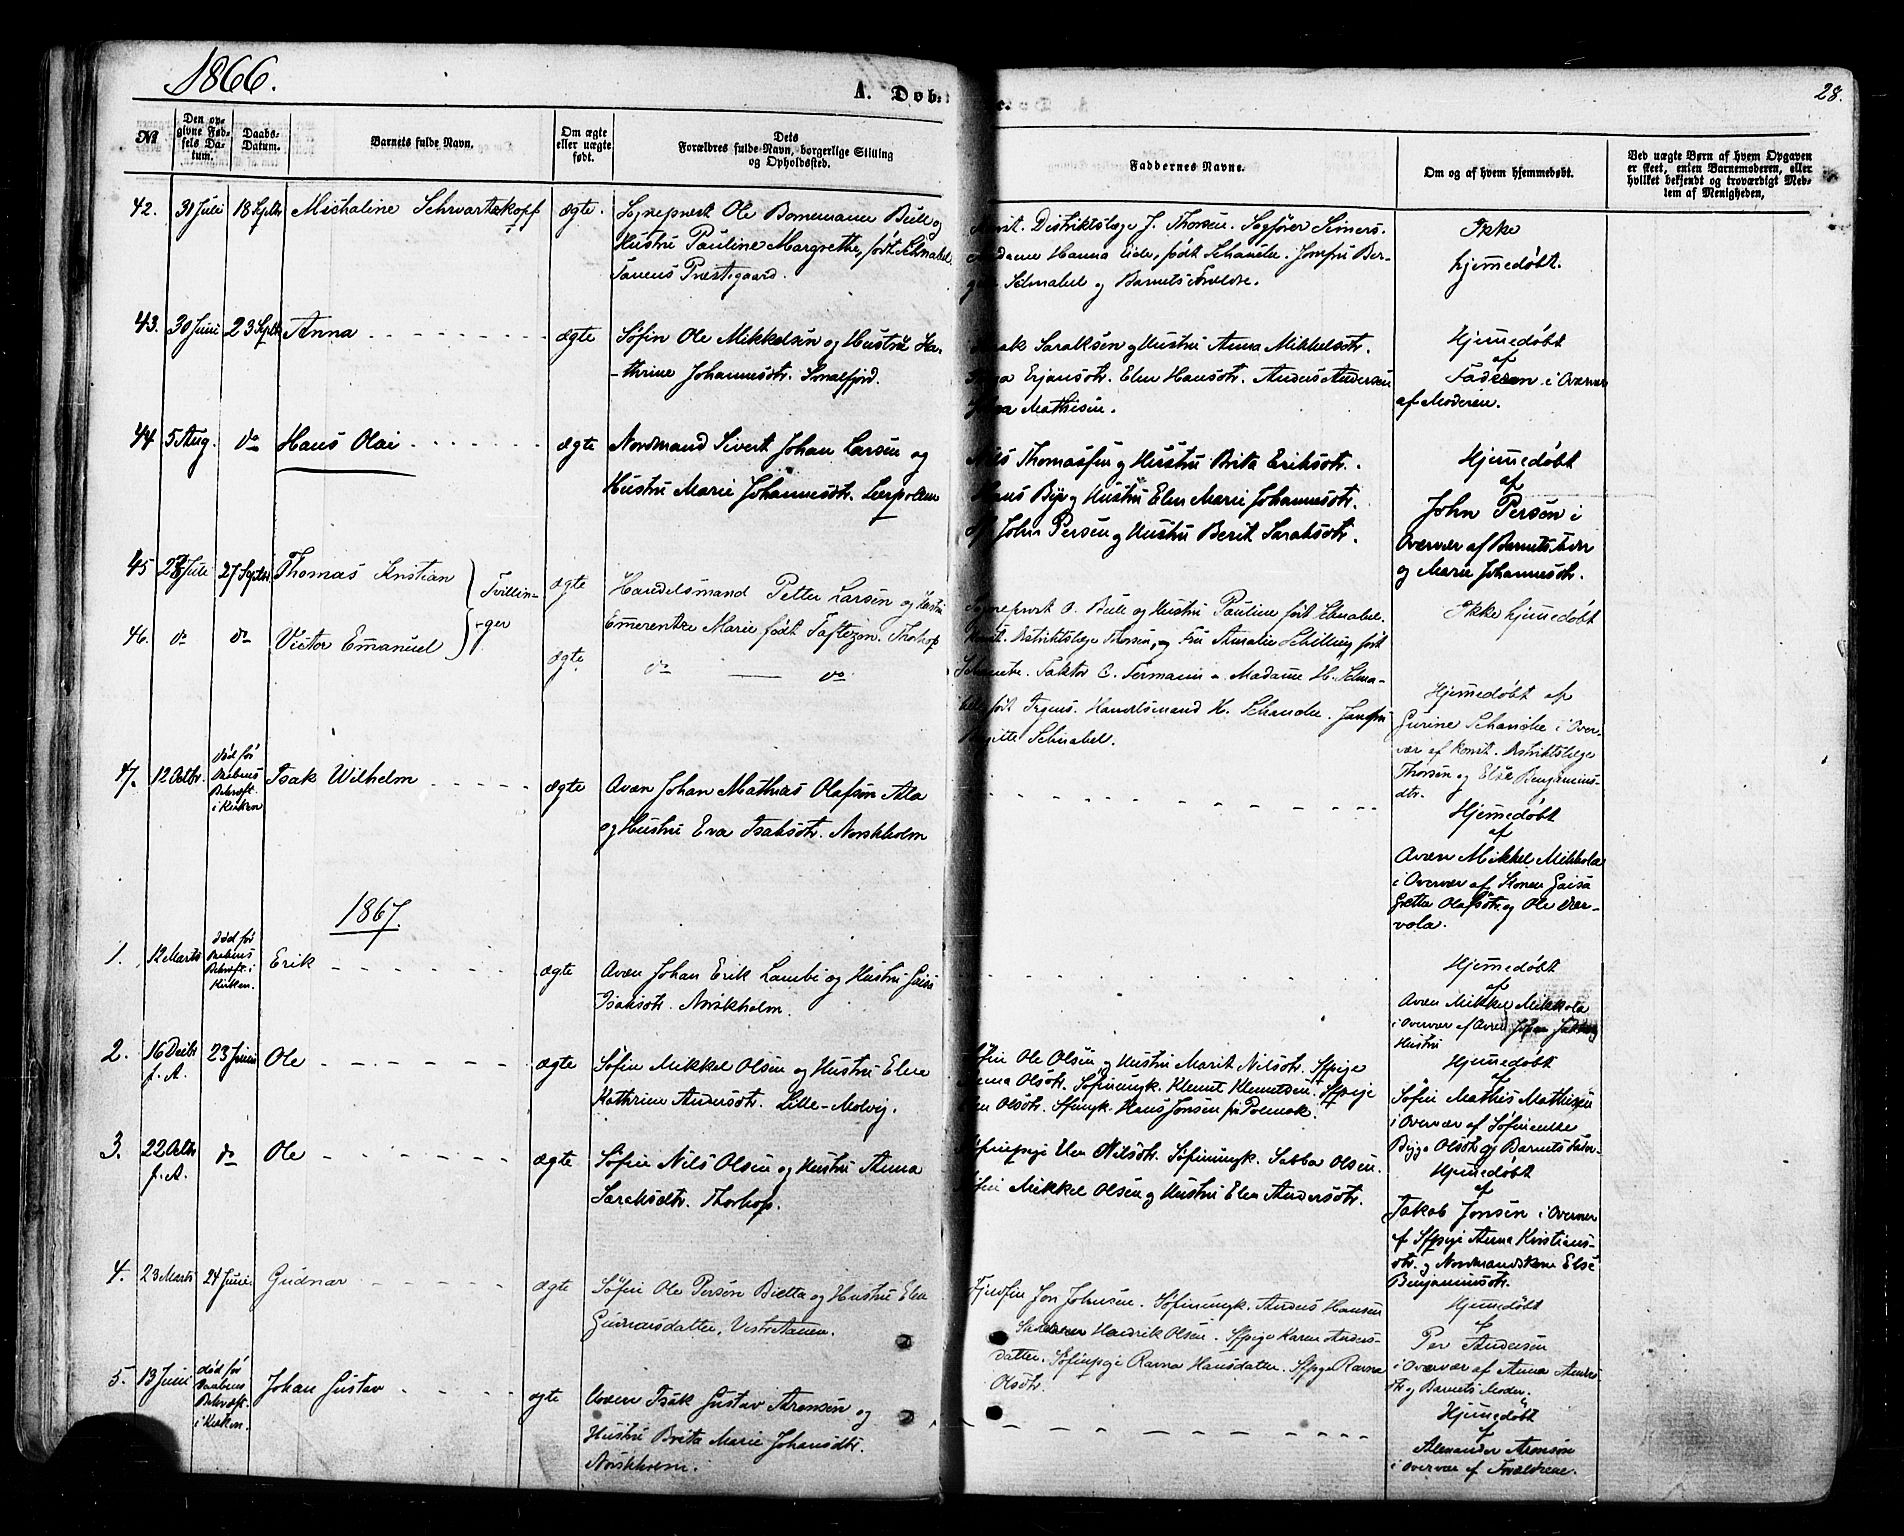 1866.
A. Døb
28.
№
Den opgivne Fødsels Datum.
Daabs-Datum.
Barnets fulde Navn.
Om ægte eller uægte født.
Dets Forældres fulde Navn, borgerlige Stilling og Opholdssted.
Faddernes Navne.
Om og af hvem hjemmedøbt.
Ved uægte Børn af hvem Opgaven er skeet, enten Barnemoderen, eller hvilket bekjendt og troværdigt Medlem af Menigheden,
42. 31 Juli 18 Septbr Michaline Schvartzkopf ægte.
Sognepræst Ole Bornemann Bull og
Hustru Pauline Margrethe, født Schnabel
Tanens Præstegaard.
Distriktslæge J. Thorsen.
Madame Hanna Eide, født Schanche. Jomfru
Schnabel og Barnets Forældre.
Ikke
hjemmedøbt.
43. 30 Juni 23 Septbr Anna ægte
Søfin Ole Mikkelsen og Hustru Ka-
thrine Johannesdtr. Smalfjord.
Isak Saraksen og Hustru Anna Mikkelsdtr.
Elen Hansdtr. Anders Andersen
Mathisen.
Hjemmedøbt
af
Faderen i Overvær
af Moderen.
44 5 Aug. do Hans Olai ægte
Nordmand Sivert Johan Larsen og
Hustru Marie Johannesdtr. Leerpollen
Nils Thomassen og Hustru Brita Eriksdtr.
Hans Bye og Hustru Elen Marie Johannesdtr.
John Persen og Hustru Berit Saraksdtr.
Hjemmedøbt
af
John Persen i
Overvær af Barnets Fader
og Marie Johannesdtr.
45 28 Juli 27 Septbr Thomas Kristian } Tvillin- ægte
Handelsmand Petter Larsen og Hustru
Emerentze Marie født Taftezon. Thorhop
46. do do Victor Emanuel } ger ægte
do — do
Sognepræst O. Bull og Hustru Pauline født Schnabel.
Konst. Distriktslæge Thorsen, og Fru Amalie Schilling født
Schanche. Faktor C. Fermann. Madame H. Schna-
bel, født Trgens. Handelsmand H. Schanche. Jomfru
Schnabel.
Ikke hjemmedøbt
Hjemmedøbt af
Gurine Schanche i Over-
vær af Konst. Distriktslæge
Thorsen og Else Benjamins-
dtr.
47. 12 Octbr. død før
Daabens
Bekræft.
i Kirken
Isak Wilhelm ægte
Qvæn Johan Mathias Olafsen Ala
og Hustru Eva Isaksdtr. Norskholm
Hjemmedøbt
af
Qvæn Mikkel Mikkola
i Overvær af Konen Gaisa
Gretta Olafsdtr. og Ole Vær-
vola.
1867.
1. 12 Marts død før
Daabens
Bekræft. i
Kirken.
Erik ægte
Qvæn Johan Erik Lambi og Hustru Gaisa
Isaksdtr. Norskholm.
Hjemmedøbt
af
Qvæn Mikkel Mikkola
i Overvær af Qvæn
Hustru
2. 16 Decbr
f. A. 23 Juni Ole ægte
Søfin Mikkel Olsen og Hustru Elen
Kathrine Andersdtr. Lille-Molvig.
Søfin Ole Olsen og Hustru Marit Nilsdtr. Sfpige
Anna Olsdtr. Søfinungk. Klemet Klemetsen. Sfpige
Elen Olsdtr. Sfungk. Hans Jonsen fra Polmak.
Hjemmedøbt
af
Søfin Mathis Mathisen
i Overvær af Søfinenke
Bigga Olsdtr. og Barnets Fader.
3. 22 Octbr
f. A. do Ole ægte
Søfin Nils Olsen og Hustru Anna
Saraksdtr. Thorhop.
Søfinpige Elen Nilsdtr. Søfinungk. Sabba Olsen.
Søfin Mikkel Olsen og Hustru Elen Andersdtr.
Hjemmedøbt
af
Jakob Jonsen i Overvær
af Sfpige Anna Kristians-
dtr. og Nordmandskone Else
Benjaminsdtr.
4. 23 Marts 24 Juni Gudnar ægte
Søfin Ole Persøn Bietta og Hustru Elen
Gudnarsdatter, Vestretanen.
Fjeldfin Jon Johnsen. Søfinungk. Anders Hansen
Hendrik Olsen. Sfpige Karen Anders-
datter. Søfinpige Ravna Hansdatter. Sfpige Ravna
Olsdtr.
Hjemmedøbt
af
Per Andersen
i Overvær af Anna Anders-
dtr. og Barnets Moder.
5. 13 Juni død før
Daabens
Bekræft.
i Kirken.
Johan Gustav ægte
Qvæn Isak Gustav Aronsen og
Hustru Brita Marie Johansdtr.
Norskholm.
Hjemmedøbt
af
Alexander Aronsen
i Overvær af Forældrene.